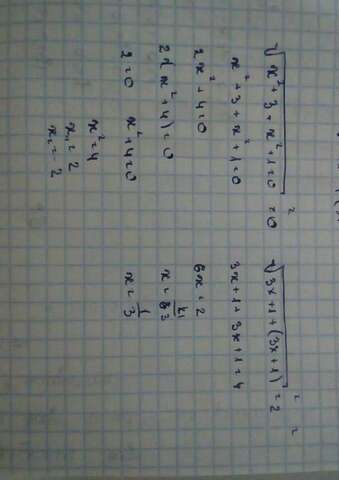 √x² + 3 + x² + 1 = 0² = 0
x² + 3 + x² + 1 = 0
2x² + 4 = 0
2(x² + 4) = 0
2 = 0 x² + 4 = 0
x² = 4
x₁ = 2
x₂ = -2
√3x + 1 + (3x + 1)² = 2²
3x + 1 + 3x + 1 = 4
6x = 2
x = 1/3